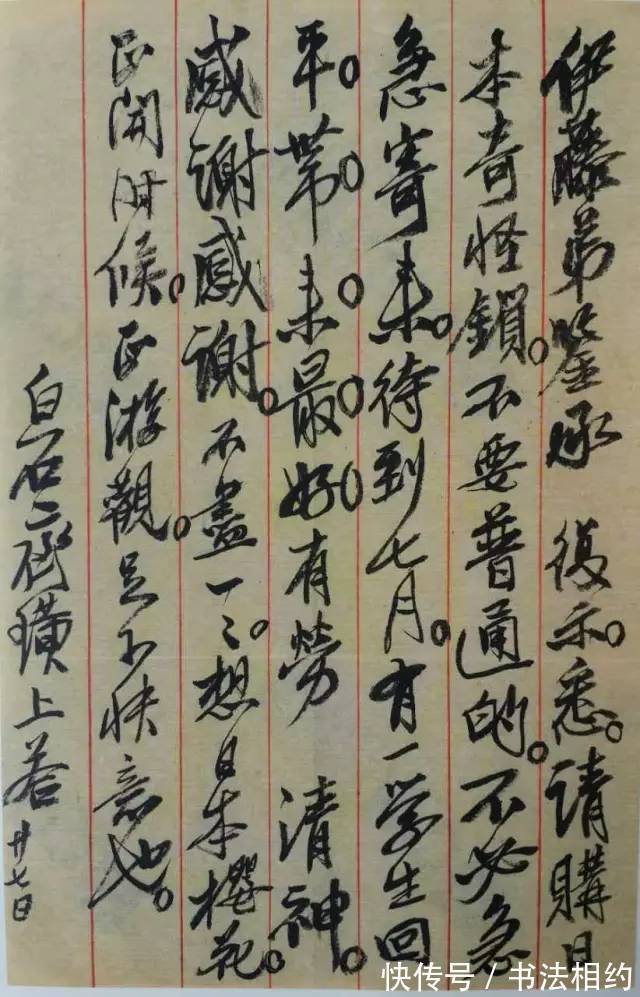 伊藤弟鉴承 復示。悉。請購日
本奇怪鎖。不要普通的。不必急
急寄来。待到七月。有一学生回
平。带来最好有勞 清神。
感谢感谢。不盡一〻。想日本櫻花
正開时候。正游觀。足下快意也。
白石齊璜上答 廿七日
快传号/书法相约